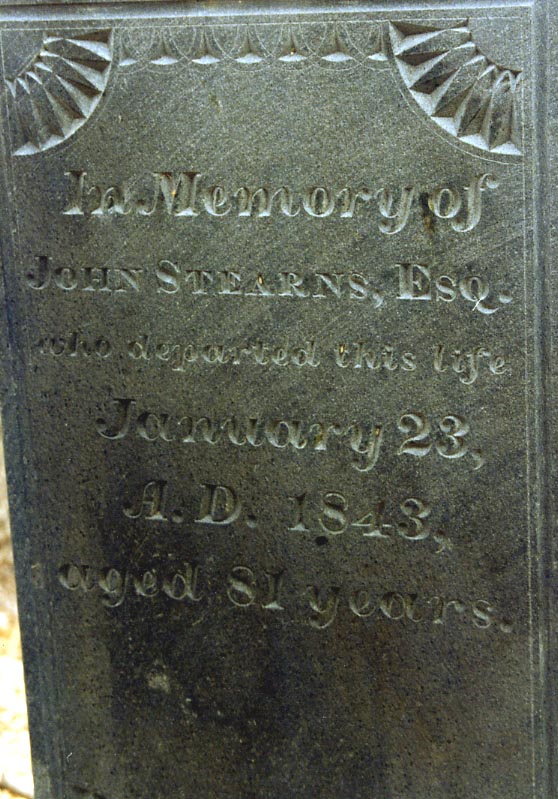 In Memory of
JOHN STEARNS, ESQ.
who departed this life
January 23,
A. D. 1843,
aged 81 years.